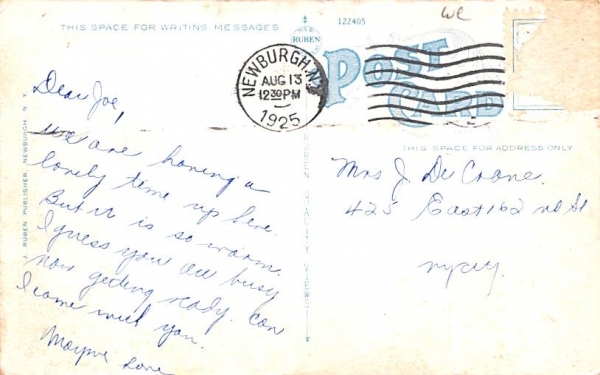 THIS SPACE FOR WRITING MESSAGES
122405
RUBEN
POST
CARD
NEWBURGH, N.Y.
AUG 13
12 30 PM
1925
THIS SPACE FOR ADDRESS ONLY
Dear Joe,
We are having a
lovely time up here.
But it is so warm.
I guess you all busy
now getting ready. Can
I come with you.
Mayme Love
Mrs J. De Crane.
425 East 162 nd St
N.Y. City.
J. RUBEN PUBLISHER, NEWBURGH, N.Y.
QUALITY VIEWS